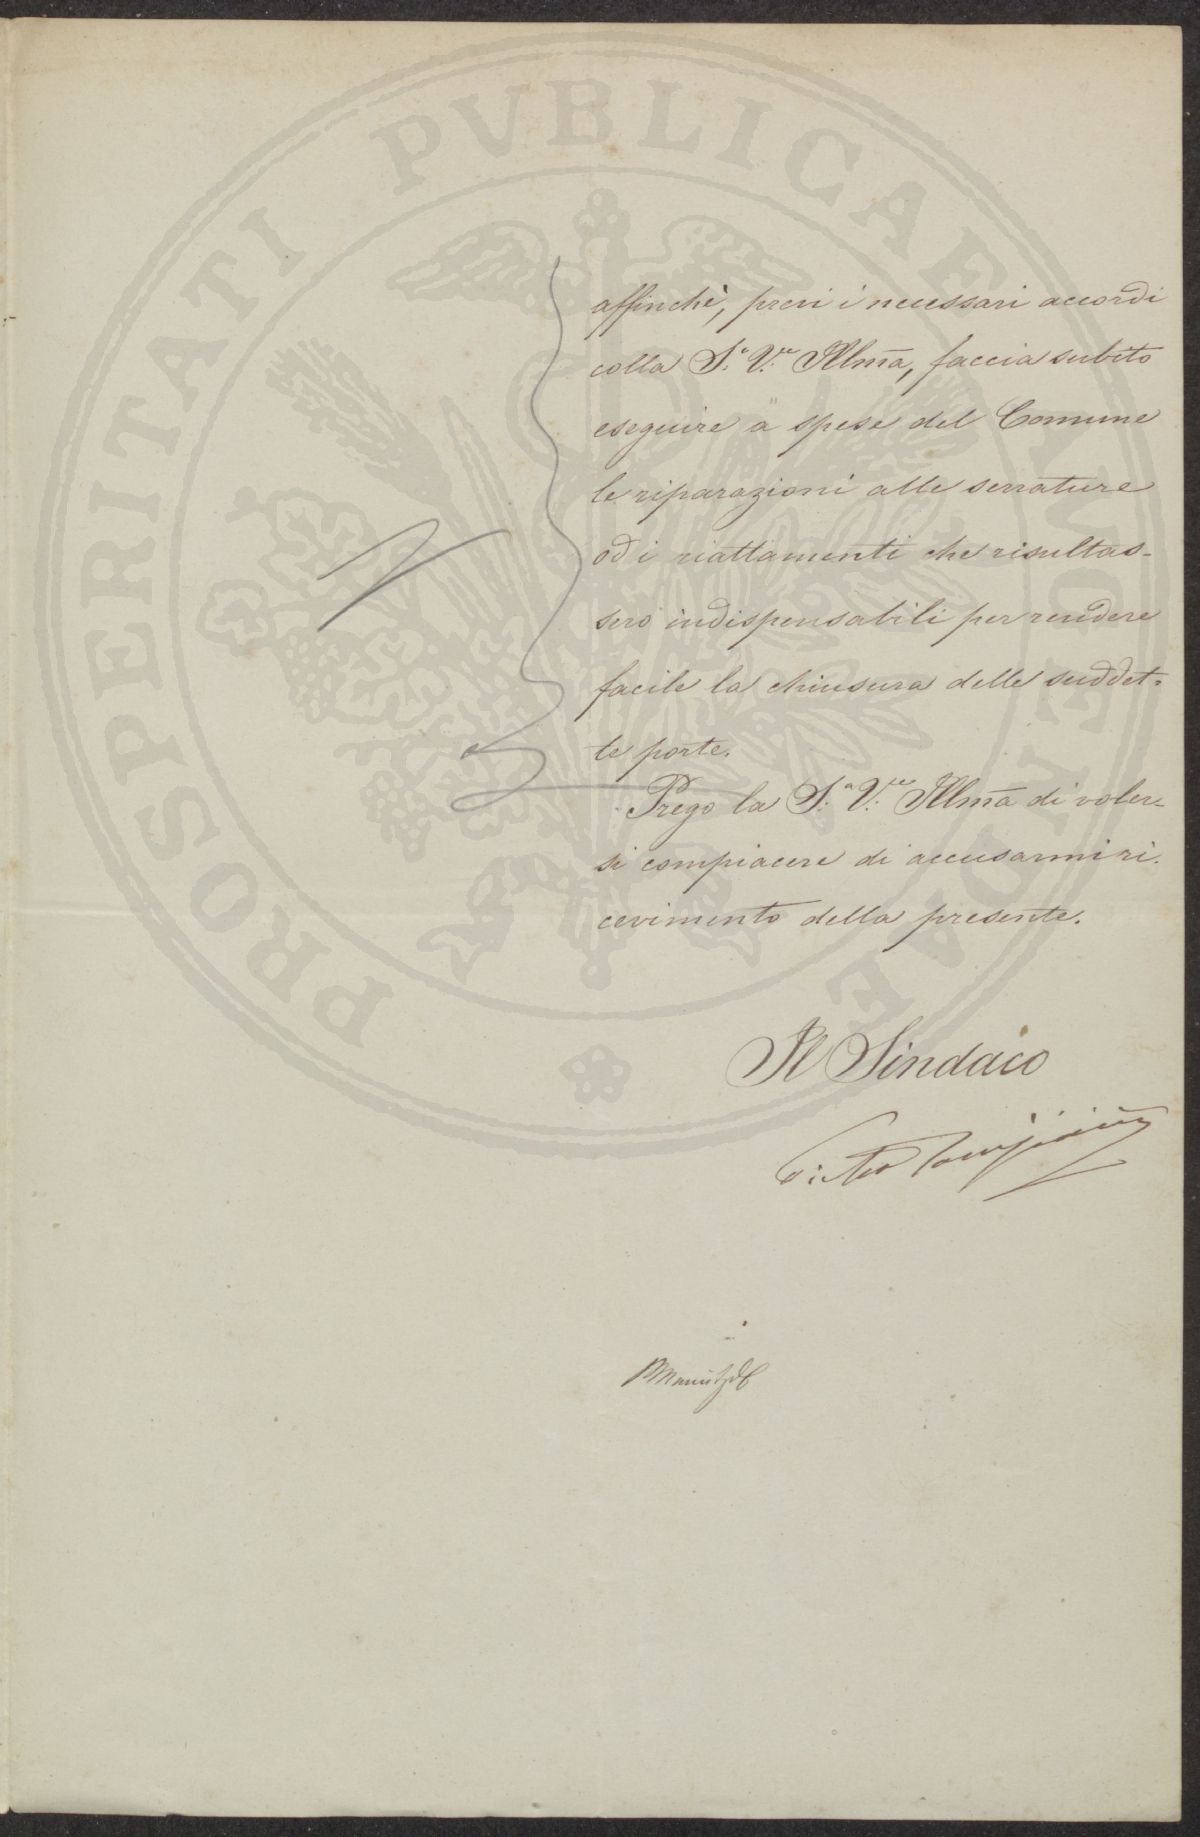 affinchè, presi i necessari accordi
colla S.ª V.ra Illma, faccia subito
eseguire a spese del Comune
le riparazioni alle serrature
od i riattamenti che risultas-
sero indispensabili per rendere
facile la chiusura delle suddet-
te porte.
Prego la S.ª V.ra Illma di voler-
si compiacere di accusarmi ri-
cevimento della presente.
Il Sindaco
PROSPERITATI PVBLICAE